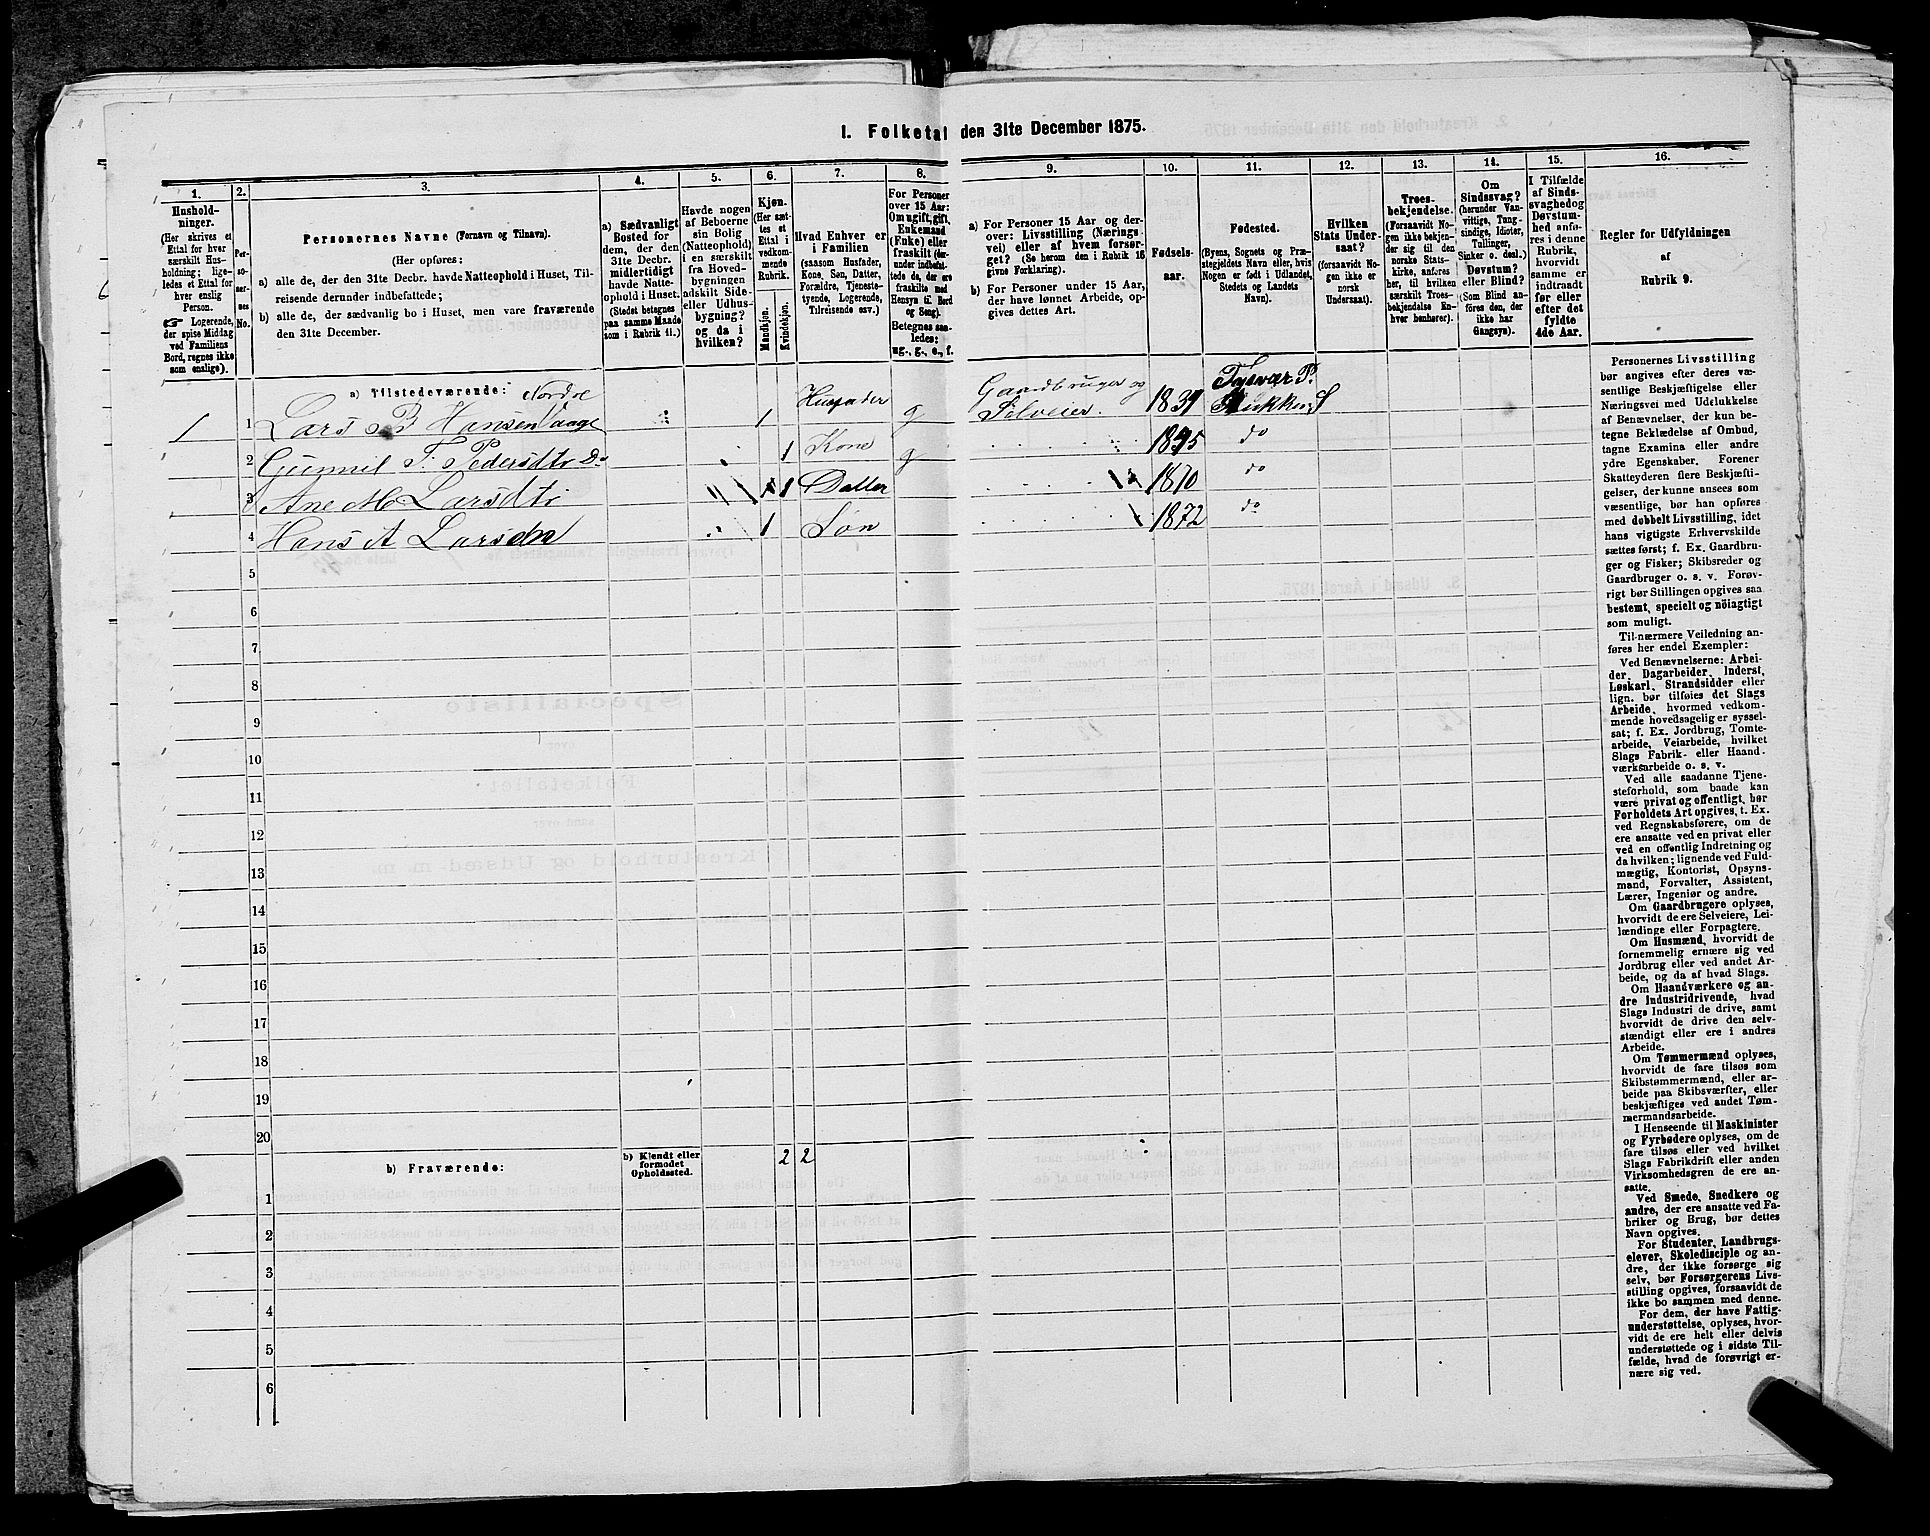 I. Folketal den 31te December 1875.
1.
Hushold-
ninger.
(Her skrives et
Ettal for hver
særskilt Hus-
holdning; lige-
ledes et Ettal for
hver enslig
Person.
☞ Logerende,
der spise Middag
ved Familiens
Bord, regnes ikke
som enslige).
2.
Per-
so-
ner-
nes
No.
3.
Personernes Navne (Fornavn og Tilnavn).
(Her opføres:
a) alle de, der den 31te Decbr. havde Natteophold i Huset, Til-
reisende derunder indbefattede;
b) alle de, der sædvanlig bo i Huset, men vare fraværende
den 31te December.
4.
a) Sædvanligt
Bosted for
dem, der den
31te Decbr.
midlertidigt
havde Natte-
ophold i Huset.
(Stedet betegnes
paa samme Maade
som i Rubrik 11.)
5.
Havde nogen
af Beboerne
sin Bolig
(Natteophold)
i en særskilt
fra Hoved-
bygningen
adskilt Side-
eller Udhus-
bygning?
og da i
hvilken?
6.
Kjøn.
(Her sæt-
tes et
Ettal i
vedkom-
mende
Rubrik.
Mandkjøn.
Kvindekjøn.
7.
Hvad Enhver er
i Familien
(saasom Husfader,
Kone, Søn, Datter,
Forældre, Tjeneste-
tyende, Logerende,
Tilreisende osv.)
8.
For Personer
over 15 Aar:
Om ugift, gift,
Enkemand
(Enke) eller
fraskilt (her-
under indbefat-
tede de, der ere
fraskilte med
Hensyn til Bord
og Seng).
Betegnes saa-
ledes:
ug., g., e., f.
9.
a) For Personer 15 Aar og der-
over: Livsstilling (Nærings-
vei) eller af hvem forsør-
get? (Se herom den i Rubrik 16
givne Forklaring).
b) For Personer under 15 Aar,
der have lønnet Arbeide, op-
gives dettes Art.
10.
Fødsels-
aar.
11.
Fødested.
(Byens, Sognets og Præ-
stegjeldets Navn eller, hvis
Nogen er født i Udlandet,
Stedets og Landets
Navn).
12.
Hvilken
Stats Under-
saat?
(forsaavidt No-
gen ikke er
norsk
Undersaat).
13.
Troes-
bekjendelse.
(Forsaavidt No-
gen ikke bekjen-
der sig til den
norske Stats-
kirke, anføres
her, til hvilken
særskilt Troes-
bekjendelse En-
hver henhører).
14.
Om
Sindssvag?
(herunder Van-
vittige, Tung-
sindige, Idioter,
Tullinger,
Sinker o. desl.).
Døvstum?
eller Blind?
(Som Blind an-
føres den, der
ikke har
Gangsyn).
15.
I Tilfælde
af Sinds-
svaghed og
Døvstum-
hed anfø-
res i denne
Rubrik,
hvorvidt
samme er
indtraadt
før eller
efter det
fyldte
4de Aar.
16.
Regler for Udfyldningen
af
Rubrik 9.
a) Tilstedeværende:
1 1 Lars B Hansen Nordre Vaage 1 Husfader g Gaardbruger og Selveier. 1839 Tysvær P.
2 Gunnil T. Pedersdtr Do 1 Kone g 1845 do
3 Ane M Larsdtr 1 Datter 1870 do
4 Hans A Larsen 1 Søn 1872 do
5
6
7
8
9
10
11
12
13
14
15
16
17
18
19
20
b) Fraværende:
b) Kjendt eller
formodet
Opholdssted.
2 2
1
2
3
4
5
6
Personernes Livsstilling
bør angives efter deres væ-
sentlige Beskjæftigelse eller
Næringsvei med Udelukkelse
af Benævnelser, der kun be-
tegne Beklædelse af Ombud,
tagne Examina eller andre
ydre Egenskaber. Forener
Skatteyderen flere Beskjæfti-
gelser, der kunne ansees som
væsentlige, bør han opføres
med dobbelt Livsstilling, idet
hans vigtigste Erhvervskilde
sættes først; f. Ex. Gaardbru-
ger og Fisker; Skibsreder og
Gaardbruger o. s. v. Forøv-
rigt bør Stillingen opgives saa
bestemt, specielt og nöiagtigt
som muligt.
Til nærmere Veiledning an-
føres her endel Exempler:
Ved Benævnelserne: Arbei-
der, Dagarbeider, Inderst,
Løskarl, Strandsidder eller
lign. bør tilføies det Slags
Arbeide, hvormed vedkom-
mende hovedsagelig er syssel-
sat; f. Ex. Jordbrug, Tomte-
arbeide, Veiarbeide, hvilket
Slags Fabrik- eller Haand-
værksarbeide o. s. v.
Ved alle saadanne Tjene-
steforhold, som baade kan
være privat og offentligt, bør
Forholdets Art opgives, t. Ex.
ved Regnskabsførere, om de
ere ansatte ved en privat eller
ved en offentlig Indretning og
da hvilken; lignende ved Fuld-
mægtig, Kontorist, Opsyns-
mand, Forvalter, Assistent,
Lærer, Ingeniør og andre.
Om Gaardbrugere oplyses,
hvorvidt de ere Selveiere, Lei-
lændinge eller Forpagtere.
Om Husmænd, hvorvidt de
fornemmelig ernære sig ved
Jordbrug eller ved andet Ar-
beide, og da af hvad Slags.
Om Haandværkere og an-
dre Industridrivende, hvad
Slags Industri de drive, samt
hvorvidt de drive den selv-
stændigt eller ere i andres
Arbeide.
Om Tømmermænd oplyses,
hvorvidt de fare tilsøs som
Skibstømmermænd, eller ar-
beide paa Skibsværfter, eller
beskjæftiges ved andet Tøm-
mermandsarbeide.
I Henseende til Maskinister
og Fyrbødere oplyses, om de
fare tilsøs eller ved hvilket
Slags Fabrikdrift eller anden
Virksomhedsgren de ere an-
satte.
Ved Smede, Snedkere og
andre, der ere ansatte ved Fa-
briker og Brug, bør dettes
Navn opgives.
For Studenter, Landbrugs-
elever, Skoledisciple og an-
dre, der ikke forsørge sig
selv, bør Forsørgerens Livs-
stilling opgives, forsaavidt de
ikke bo sammen med denne.
For dem, der have Fattig-
understøttelse, oplyses, hvor-
vidt de ere helt eller delvis
understøttede og i sidste Til-
fælde, hvad de forøvrigt er-
nære sig ved.